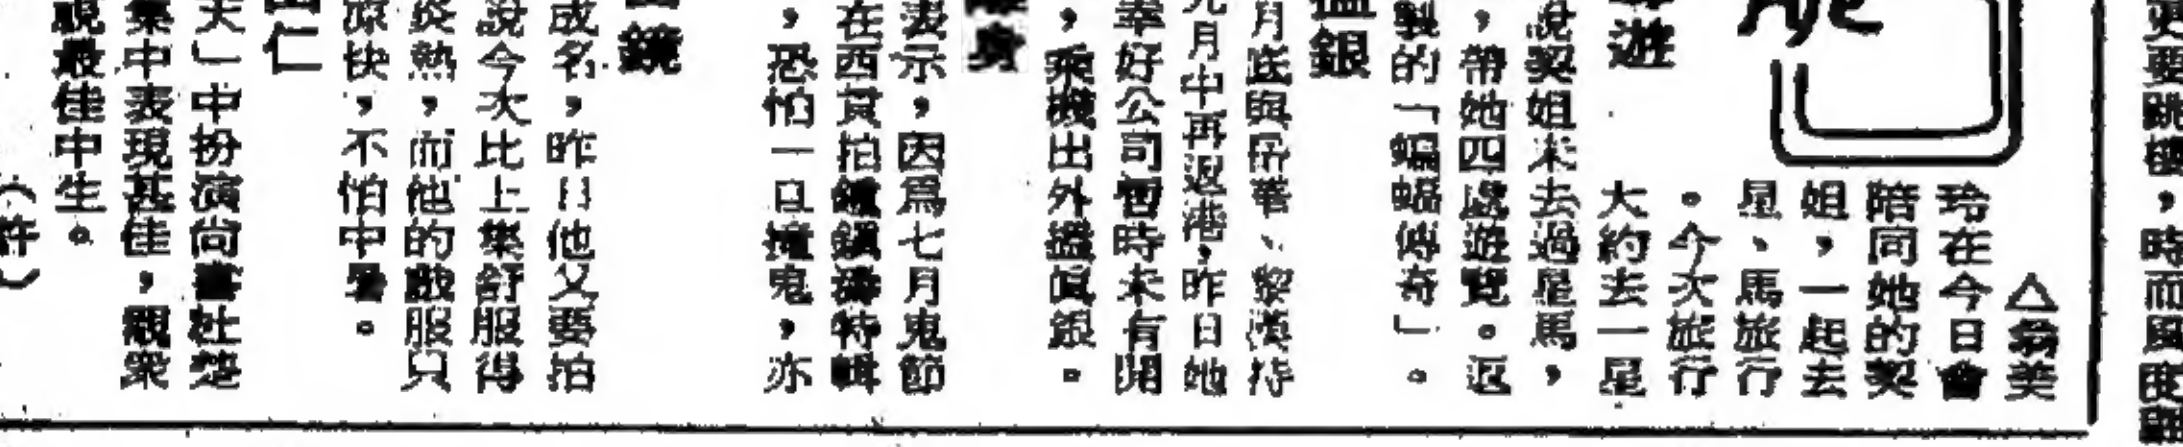 更要跳樓，時而風度
△翁美
玲在今日會
陪同她的契
姐，一起去
星、馬旅行
。今次旅行
大約去一星
遊
說契姐未去過星馬，
，帶她四處遊覽。返
製的「蝙蝠傳奇」。
銀
月底與岳華、黎漢持
月中再返港，昨日她
幸好公司暫時未有開
，乘機出外搵眞銀。
身
表示，因爲七月鬼節
在西貢拍鐵鎖濤特輯
，恐怕一旦撞鬼，亦
鏡
成名，昨日他又要拍
說今次比上集舒服得
炎熱，而他的戲服只
凉快，不怕中暑。
仁
大」中扮演尚書杜楚
集中表現甚佳，觀衆
視最佳中生。
（許）